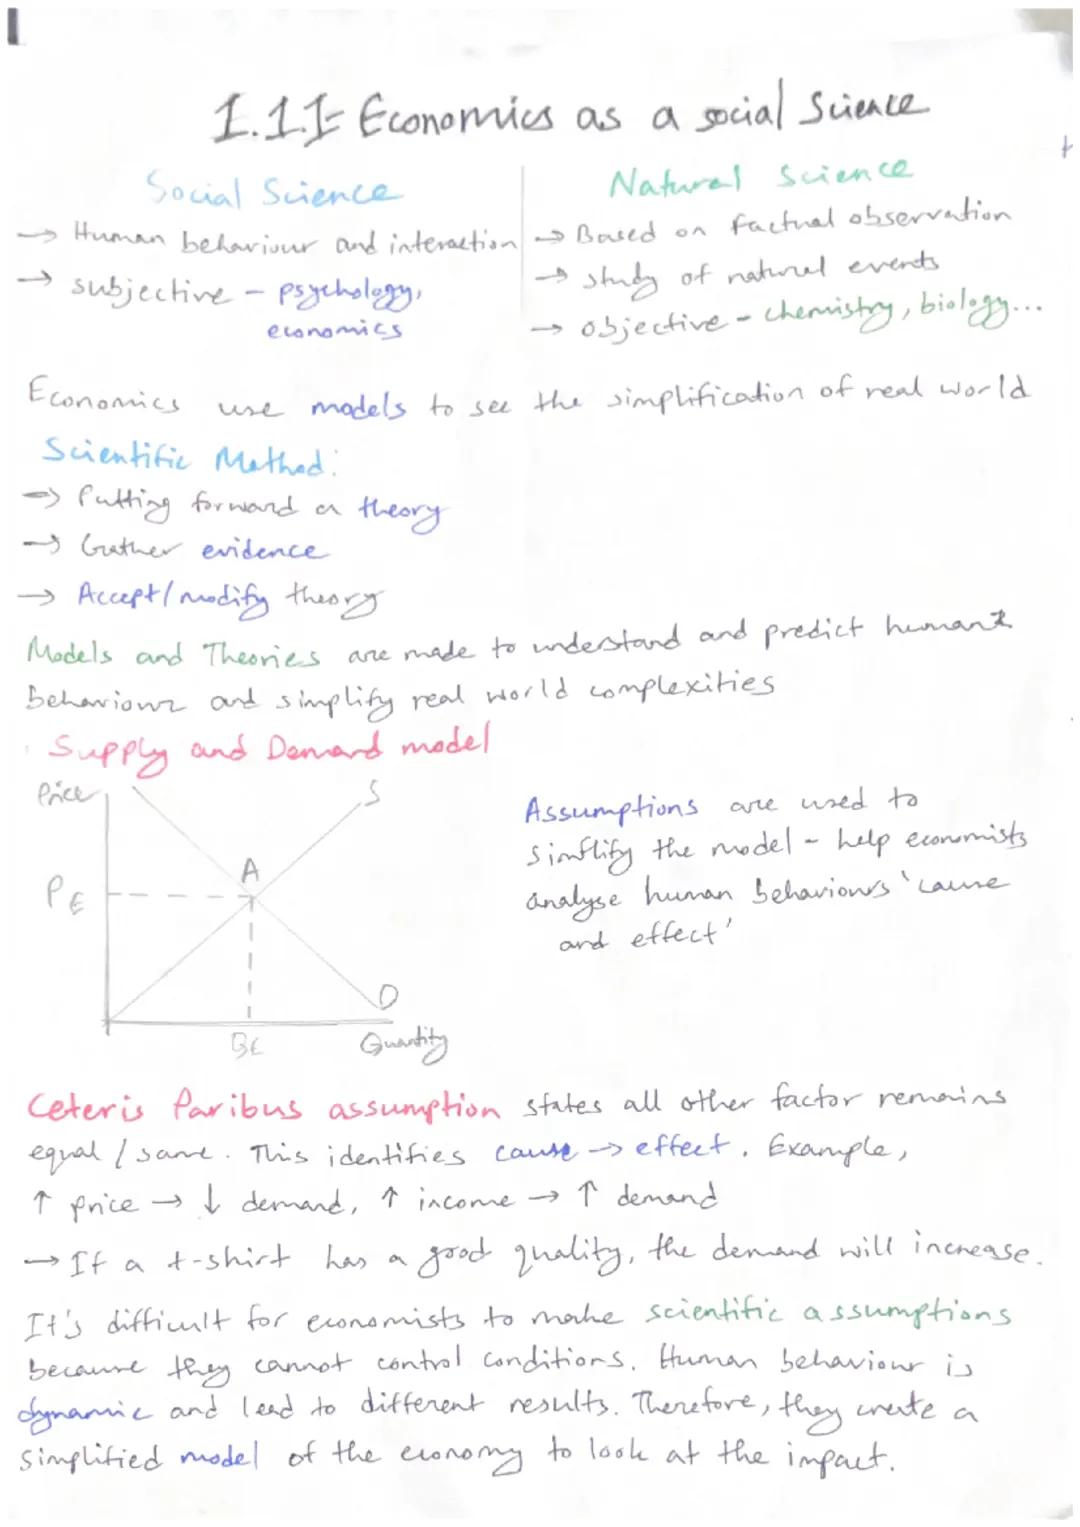 1.1.1- Economics as a social Science
Social Science
→ Human behaviour and interaction
→ subjective - psychology,
economics
Natural Science
→ Based on factual observation
→ study of natural events
→ objective - chemistry, biology...
Economics use models to see the simplification of real world
Scientific Method:
→ Putting forward a theory
→ Gather evidence
→ Accept/modify theory
Models and Theories are made to understand and predict human
behaviour and simplify real world complexities
Supply and Demand model
Price
S
A
PE
D
QE
Quantity
Assumptions are used to
simplify the model - help economists
analyse human behaviours 'cause
and effect'
Ceteris Paribus assumption states all other factor remains
equal / same. This identifies cause → effect. Example,
↑ price → ↓ demand, ↑ income → ↑ demand
→ If a t-shirt has a good quality, the demand will increase.
It's difficult for economists to make scientific assumptions
because they cannot control conditions. Human behaviour is
dynamic and lead to different results. Therefore, they create a
simplified model of the economy to look at the impact.